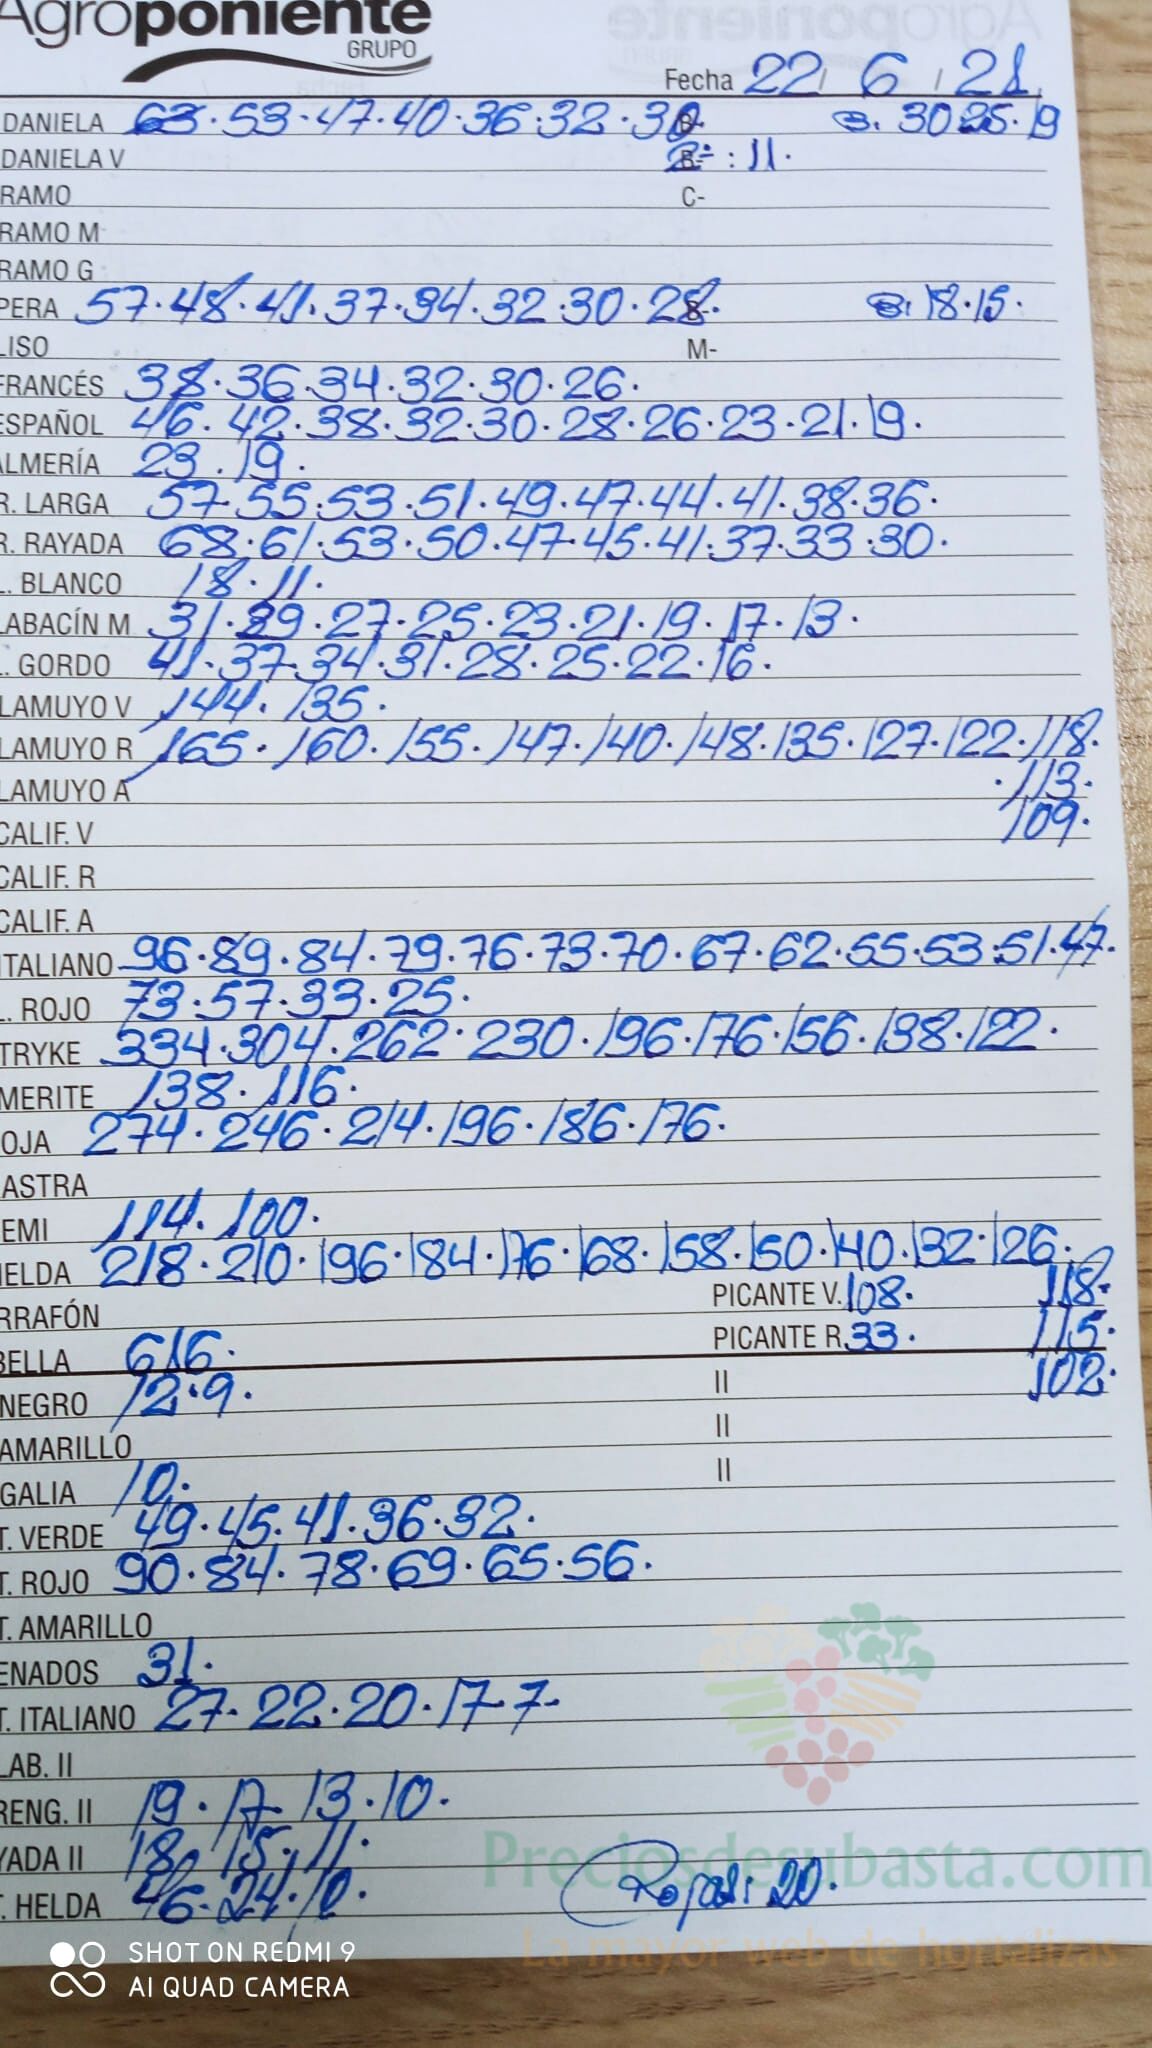 Agroponiente
GRUPO
Fecha 22/ 6 / 21
DANIELA 63·53·47·40·36·32·30 B- B. 30 25·19
DANIELA V B- 2ª: 11·
RAMO C-
RAMO M
RAMO G
PERA 57·48·41·37·34·32·30·28· B. 18·15·
LISO M-
FRANCÉS 38·36·34·32·30·26·
ESPAÑOL 46·42·38·32·30·28·26·23·21·19·
ALMERÍA 23·19·
R. LARGA 57·55·53·51·49·47·44·41·38·36·
R. RAYADA 68·61·53·50·47·45·41·37·33·30·
. BLANCO 18·11·
LABACÍN M 31·29·27·25·23·21·19·17·13·
. GORDO 41·37·34·31·28·25·22·16·
LAMUYO V 144·135·
LAMUYO R 165·160·155·147·140·148·135·127·122·118·
LAMUYO A ·113·
CALIF. V 109·
CALIF. R
CALIF. A
ITALIANO 96·89·84·79·76·73·70·67·62·55·53·51·47·
. ROJO 73·57·33·25·
TRYKE 334·304·262·230·196·176·156·138·122·
MERITE 138·116·
OJA 274·246·214·196·186·176·
ASTRA
EMI 114·100·
HELDA 218·210·196·184·176·168·158·150·140·132·126·
RRAFÓN PICANTE V. 108· 118·
BELLA 6 16· PICANTE R. 33· 115·
NEGRO 12·9· II 102·
AMARILLO II
GALIA 10· II
T. VERDE 49·45·41·36·32·
T. ROJO 90·84·78·69·65·56·
T. AMARILLO
ENADOS 31·
T. ITALIANO 27·22·20·17·7-
LAB. II
RENG. II 19·17·13·10·
YADA II 18·15·11·
T. HELDA 46·24·10· 20·
Preciosdesubasta.com
La mayor web de hortalizas
SHOT ON REDMI 9
AI QUAD CAMERA